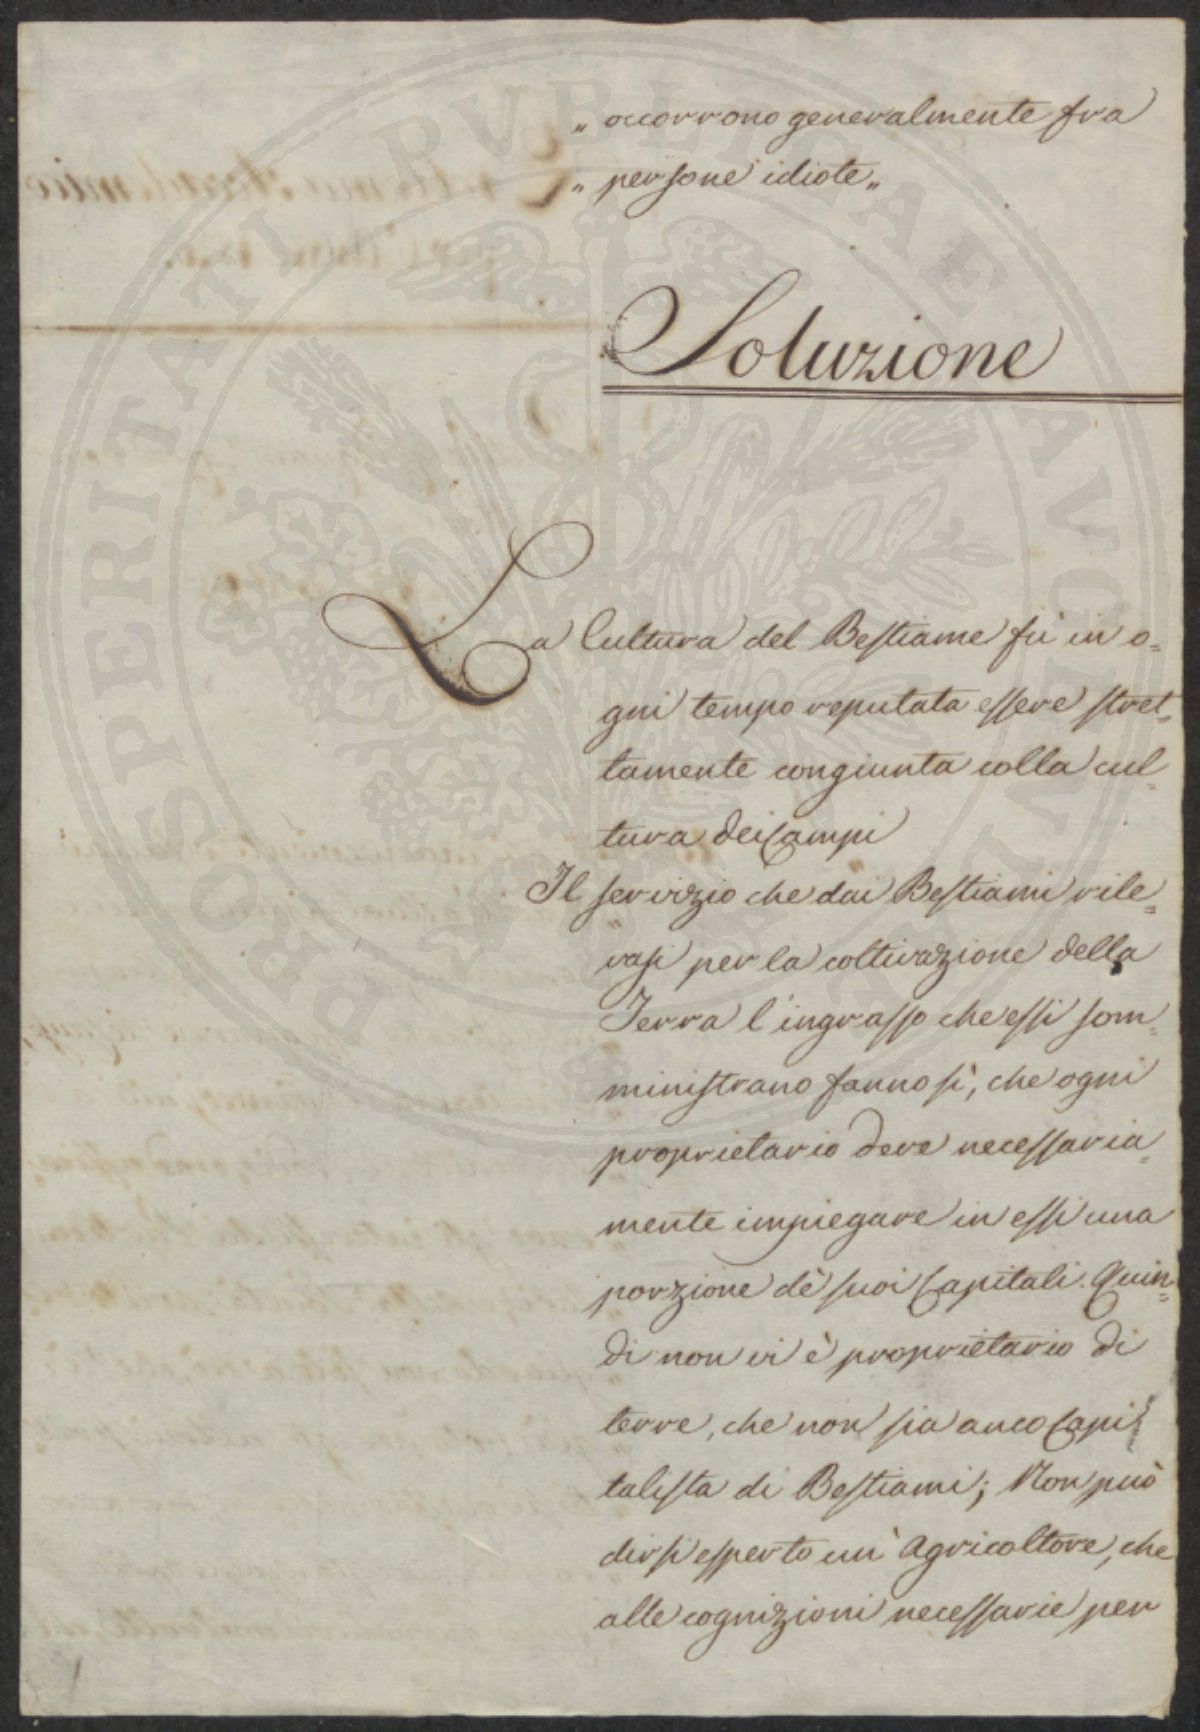 „ occorrono generalmente fra
„ persone idiote „
Soluzione
La Cultura del Bestiame fù in o=
gni tempo reputata essere stret=
tamente congiunta colla cul=
tura dei Campi
Il servizio che dai Bestiami rile=
vasi per la coltivazione della
Terra l'ingrasso che essi som=
ministrano fanno sì, che ogni
proprietario deve necessaria=
mente impiegare in essi una
porzione de' suoi Capitali. Quin=
di non vi è proprietario di
terre, che non sia anco Capi=
talista di Bestiami; Non può
dirsi esperto un' Agricoltore, che
alle cognizioni necessarie per
PROSPERITATI PVBLICAE AVGENDAE